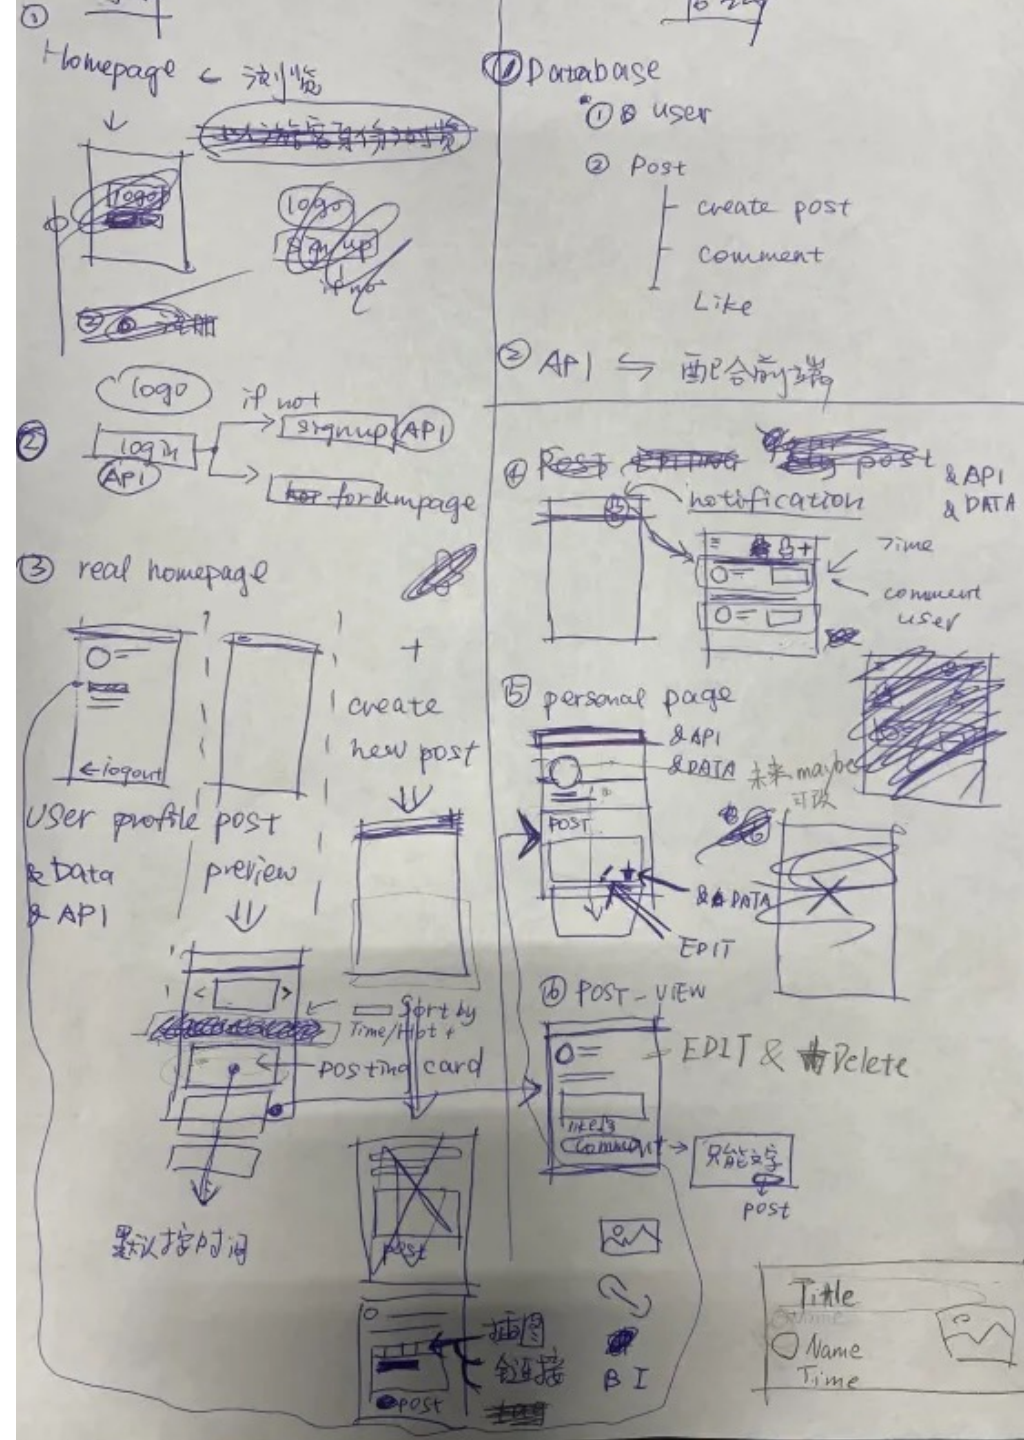 ①
Homepage < 浏览
logo
logo
sign up
if not
②
logo
if not
login
signup API
API
forumpage
③ real homepage
+
create
new post
←logout
User profile post
& Data
preview
& API
< >
Sort by
Time/Hot
posting card
默认按时间
post
插图
链接
post
① Database
① user
② Post
create post
comment
Like
② API ⇆ 配合前端
④
post
& API
notification
& DATA
Time
comment
user
⑤ personal page
& API
& DATA 未来 maybe
可改
POST
& DATA
EDIT
⑥ POST-VIEW
EDIT & Delete
likes
Comment → 只能文字
post
B I
Title
Name
Name
Time